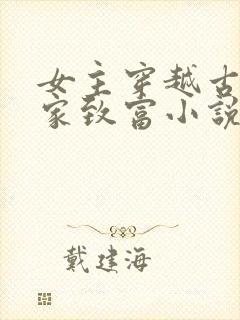 女主穿越古
家致富小説
戴建海